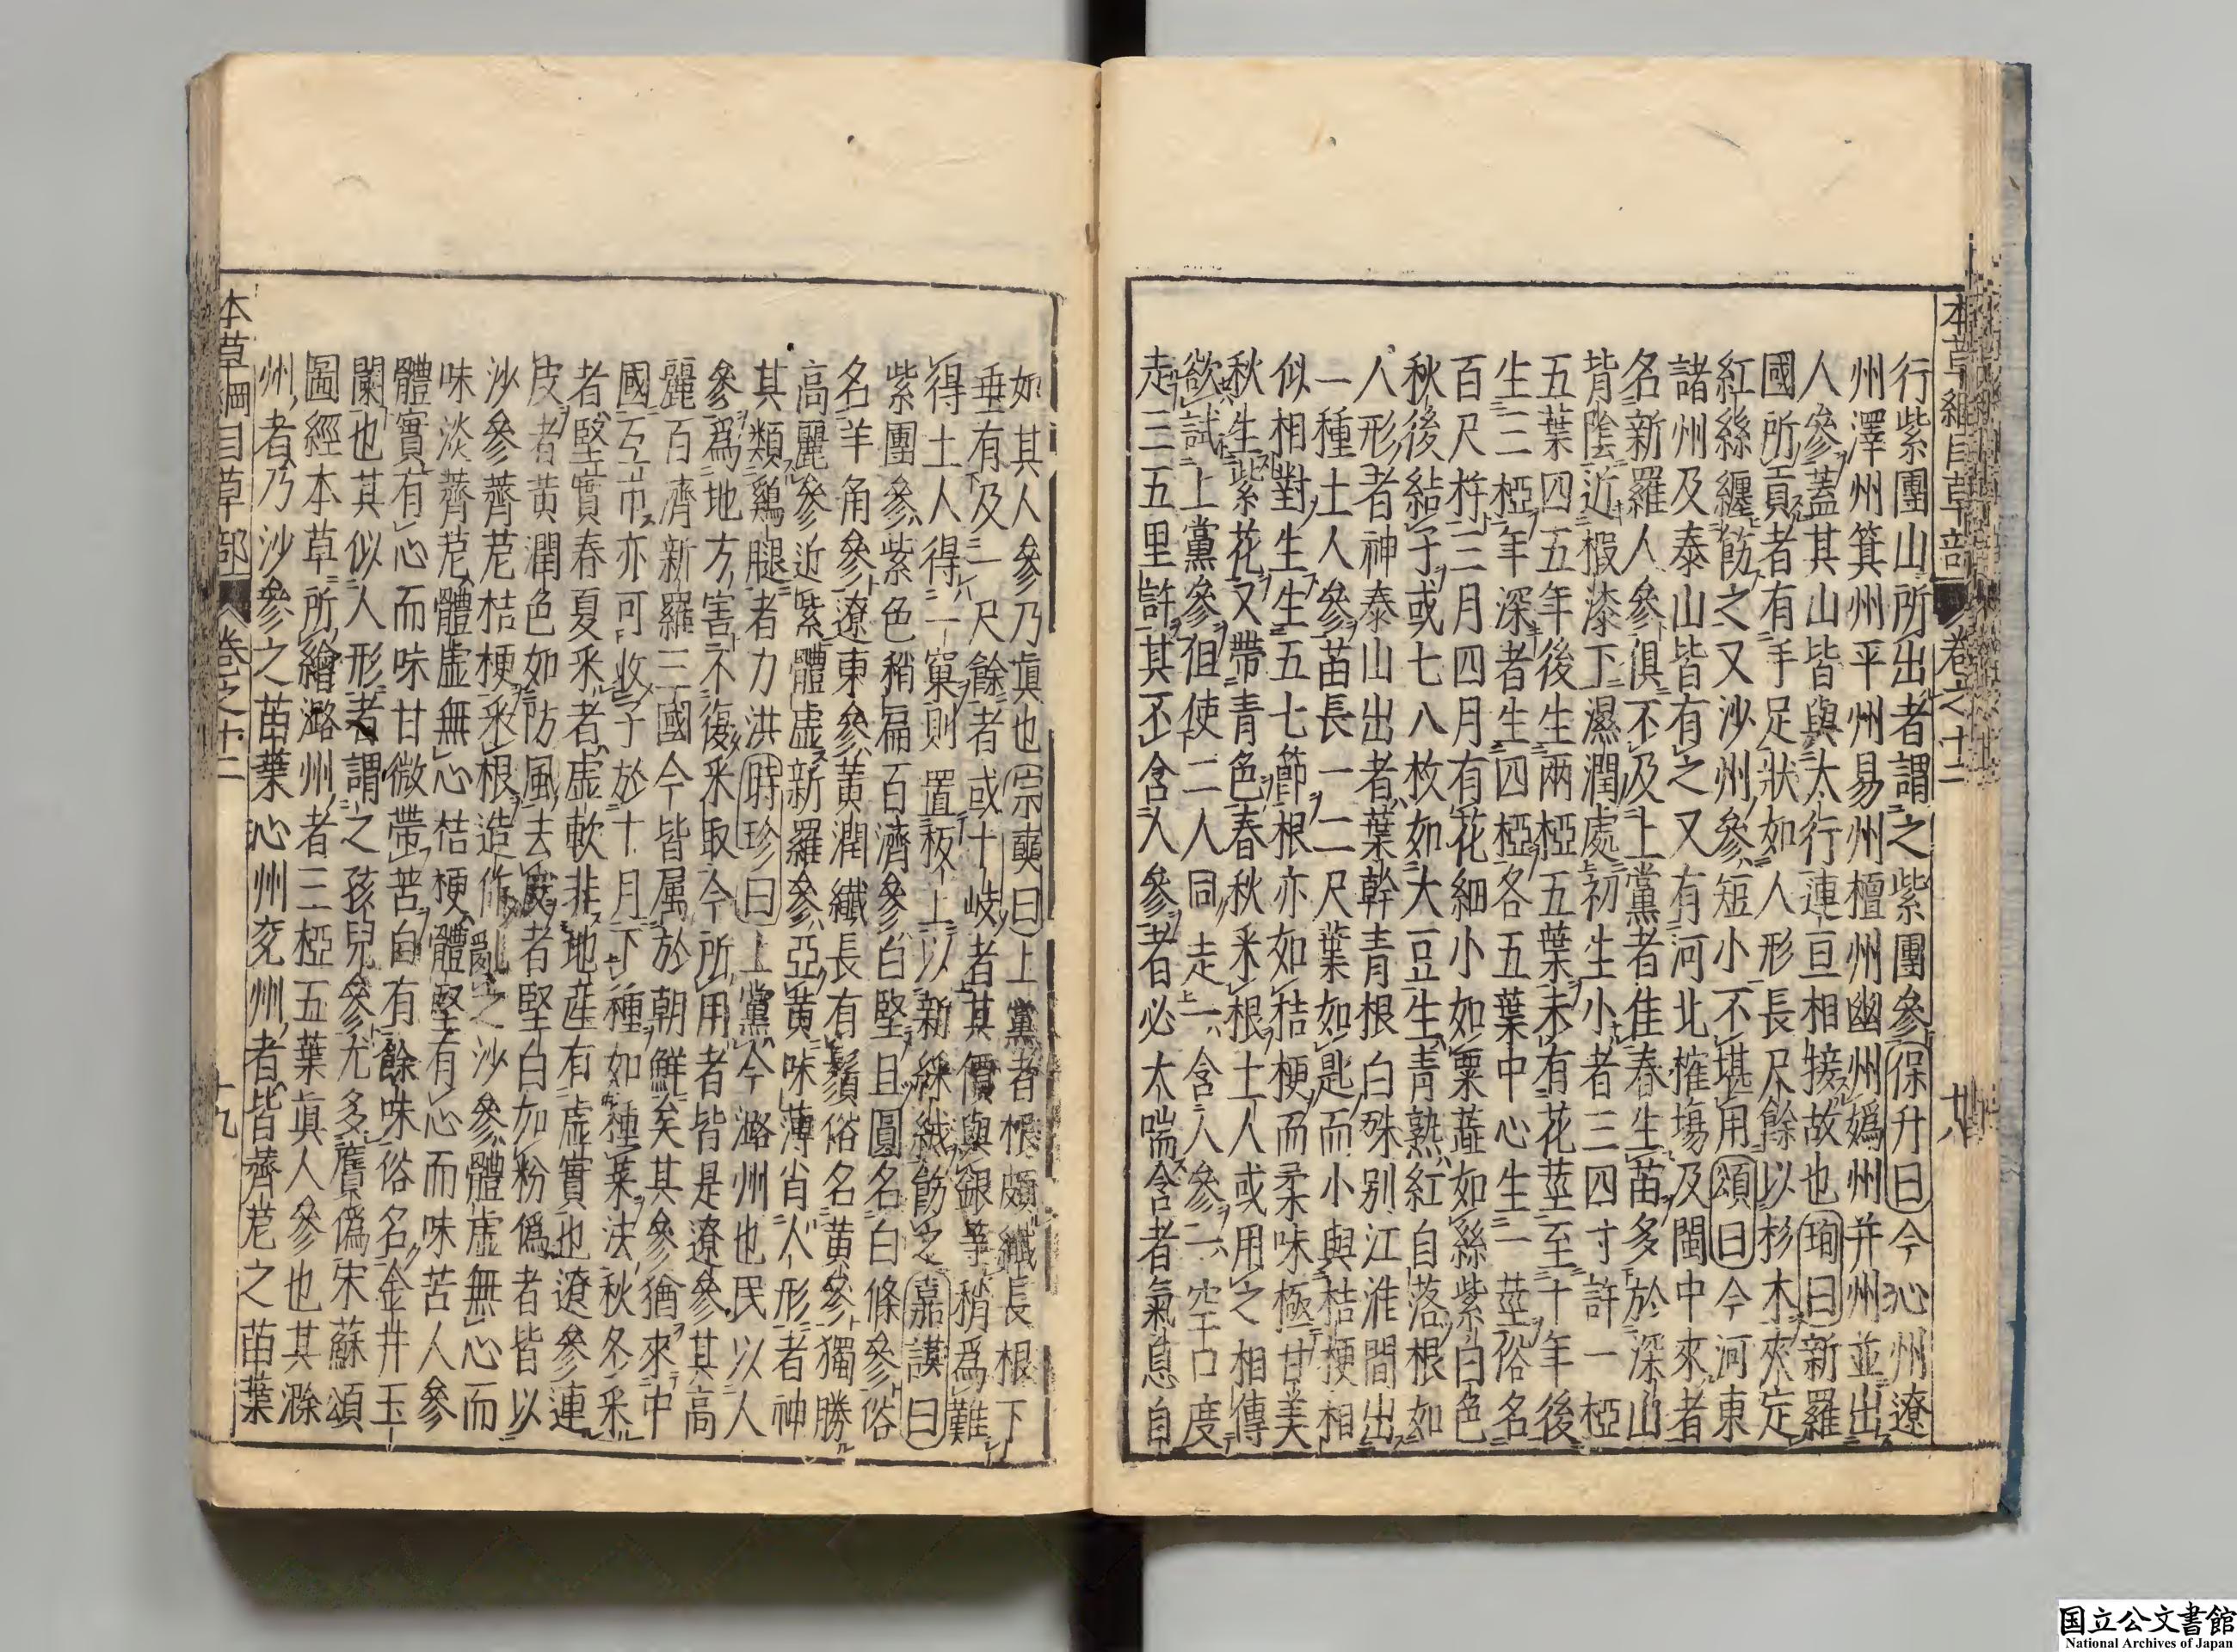 本草綱目草部 卷之十二 十八
行紫團山所出者謂之紫團參保升曰今沁州遼
州澤州箕州平州易州檀州幽州嬀州并州並出
人參蓋其山皆與太行連亘相接故也珣曰新羅
國所貢者有手足狀如人形長尺餘以杉木夾定
紅絲纏飭之又沙州參短小不堪用頌曰今河東
諸州及泰山皆有之又有河北榷場及閩中來者
名新羅人參俱不及上黨者佳春生苗多於深山
背陰近椵漆下濕潤處初生小者三四寸許一椏
五葉四五年後生兩椏五葉未有花莖至十年後
生三椏年深者生四椏各五葉中心生一莖俗名
百尺杵三月四月有花細小如粟蘂如絲紫白色
秋後結子或七八枚如大豆生青熟紅自落根如
人形者神泰山出者葉幹青根白殊别江淮間出
一種土人參苗長一二尺葉如匙而小與桔梗相
似相對生生五七節根亦如桔梗而柔味極甘美
秋生紫花又帶青色春秋采根土人或用之相傳
欲試上黨參但使二人同走一含人參一空口度
走三五里許其不含人參者必太喘含者氣息自
如其人參乃真也宗奭曰上黨者根頗纖長根下
垂有及一尺餘者或十岐者其價與銀等稍爲難
得土人得一窠則置板上以新綵絨飭之嘉謨曰
紫團參紫色稍扁百濟參白堅且圓名白條參俗
名羊角參遼東參黃潤纖長有鬚俗名黃參獨勝
高麗參近紫體虛新羅參亞黃味薄肖人形者神
其類鷄腿者力洪時珍曰上黨今潞州也民以人
參爲地方害不復采取今所用者皆是遼參其高
麗百濟新羅三國今皆属於朝鮮矣其參猶來中
國互市亦可收子於十月下種如種菜法秋冬采
者堅實春夏采者虛軟非地產有虛實也遼參連
皮者黃潤色如防風去皮者堅白如粉偽者皆以
沙參薺苨桔梗采根造作亂之沙參體虛無心而
味淡薺苨體虛無心桔梗體堅有心而味苦人參
體實有心而味甘微帶苦自有餘味俗名金井玉
闌也其似人形者謂之孩兒參尤多贋偽宋蘇頌
圖經本草所繪潞州者三椏五葉真人參也其滁
州者乃沙參之苗葉沁州兖州者皆薺苨之苗葉
本草綱目草部 卷之十二 十九
国立公文書館
National Archives of Japan